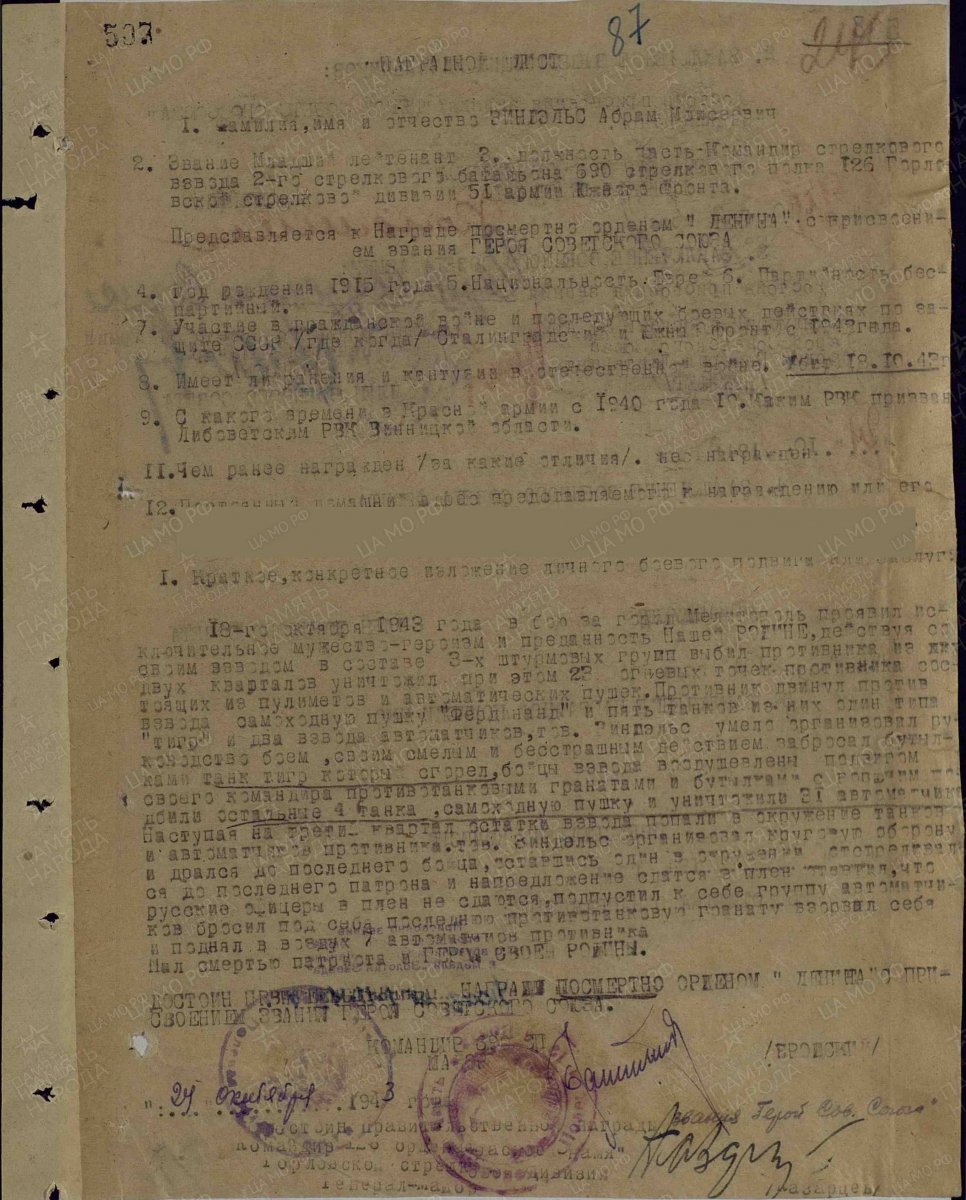 503
87
НАГРАДНОЙ ЛИСТ
I. Фамилия, имя и отчество ЗИНДЕЛЬС Абрам Моисеевич
2. Звание Младший лейтенант 3. должность часть-Командир стрелкового
взвода 2-го стрелкового батальона 690 стрелкового полка 126 Горло
вской стрелковой дивизии 51 армии Южного фронта.
Представляется к Награде посмертно орденом " ЛЕНИНА" с присвоени-
ем звания ГЕРОЯ СОВЕТСКОГО СОЮЗА
4. год рождения 1915 года 5.Национальность.Еврей 6. Партийность бес-
партийный.
7. Участие в гражданской войне и последующих боевых действиях по за-
щите СССР /где когда/ Сталинградский и Южный фронт с 1943года.
8. Имеет ли ранения и кантузии в отечественной войне. Убит 18.10.43г
9. С какого времени в Красной армии с 1940 года 10.Каким РВК призван
РВК Винницкой области.
II.Чем ранее награжден /за какие отличия/. не награжден.. ...
12.Постоянный домашний адрес представляемого к награждению или его
I. Краткое,конкретное изложение личного боевого подвига или заслуг:
18-го октября 1943 года в бою за город Мелитополь проявил ис-
ключительное мужество-героизм и преданность Нашей РОДИНЕ,действуя со
своим взводом в составе 3-х штурмовых групп выбил противника из
двух кварталов уничтожил при этом 23 огневых точек противника сос-
тоящих из пулиметов и автоматических пушек.Противник двинул против
взвода самоходную пушку "Фердинанд" и пять танков из них один типа
"тигр" и два взвода автоматчиков,тов. Зиндельс умело организовал ру-
ководство боем ,своим смелым и бесстрашным действием забросал бутыл-
ками танк тигр который сгорел,бойцы взвода воодушевлены подвигом
своего командира противотанковыми гранатами и бутылками с горючим по-
дбили остальные 4 танка ,самоходную пушку и уничтожили 31 автоматчика
Наступая на третий квартал остатки взвода попали в окружение танков
и автоматчиков противника.тов. Зиндельс организовал круговую оборону
и дрался до последнего бойца,оставшись один в окружении отстреливал-
ся до последнего патрона и напредложение сдатся в плен ответил,что
русские офицеры в плен не сдаются,подпустил к себе группу автоматчи-
ков бросил под себя последнюю противотанковую гранату взорвал себя
и поднял в воздух 7 автоматчиков противника
Пал смертью патриота и ГЕРОЯ СВОЕЙ РОДИНЫ.
ДОСТОИН НАГРАДЫ ПОСМЕРТНО ОРДЕНОМ " ЛЕНИНА"С ПРИ-
СВОЕНИЕМ ЗВАНИЯ ГЕРОЯ СОВЕТСКОГО СОЮЗА.
КОМАНДИР 690 СП
/БРОДСКИЙ/
":.24 октября 1943 года
Достоин правительственной награды звания Герой Сов. Союза"
Командир 126 ордена"Красное Знамя"
Горловской стрелковой дивизии
Генерал-майор
/Казарцев/